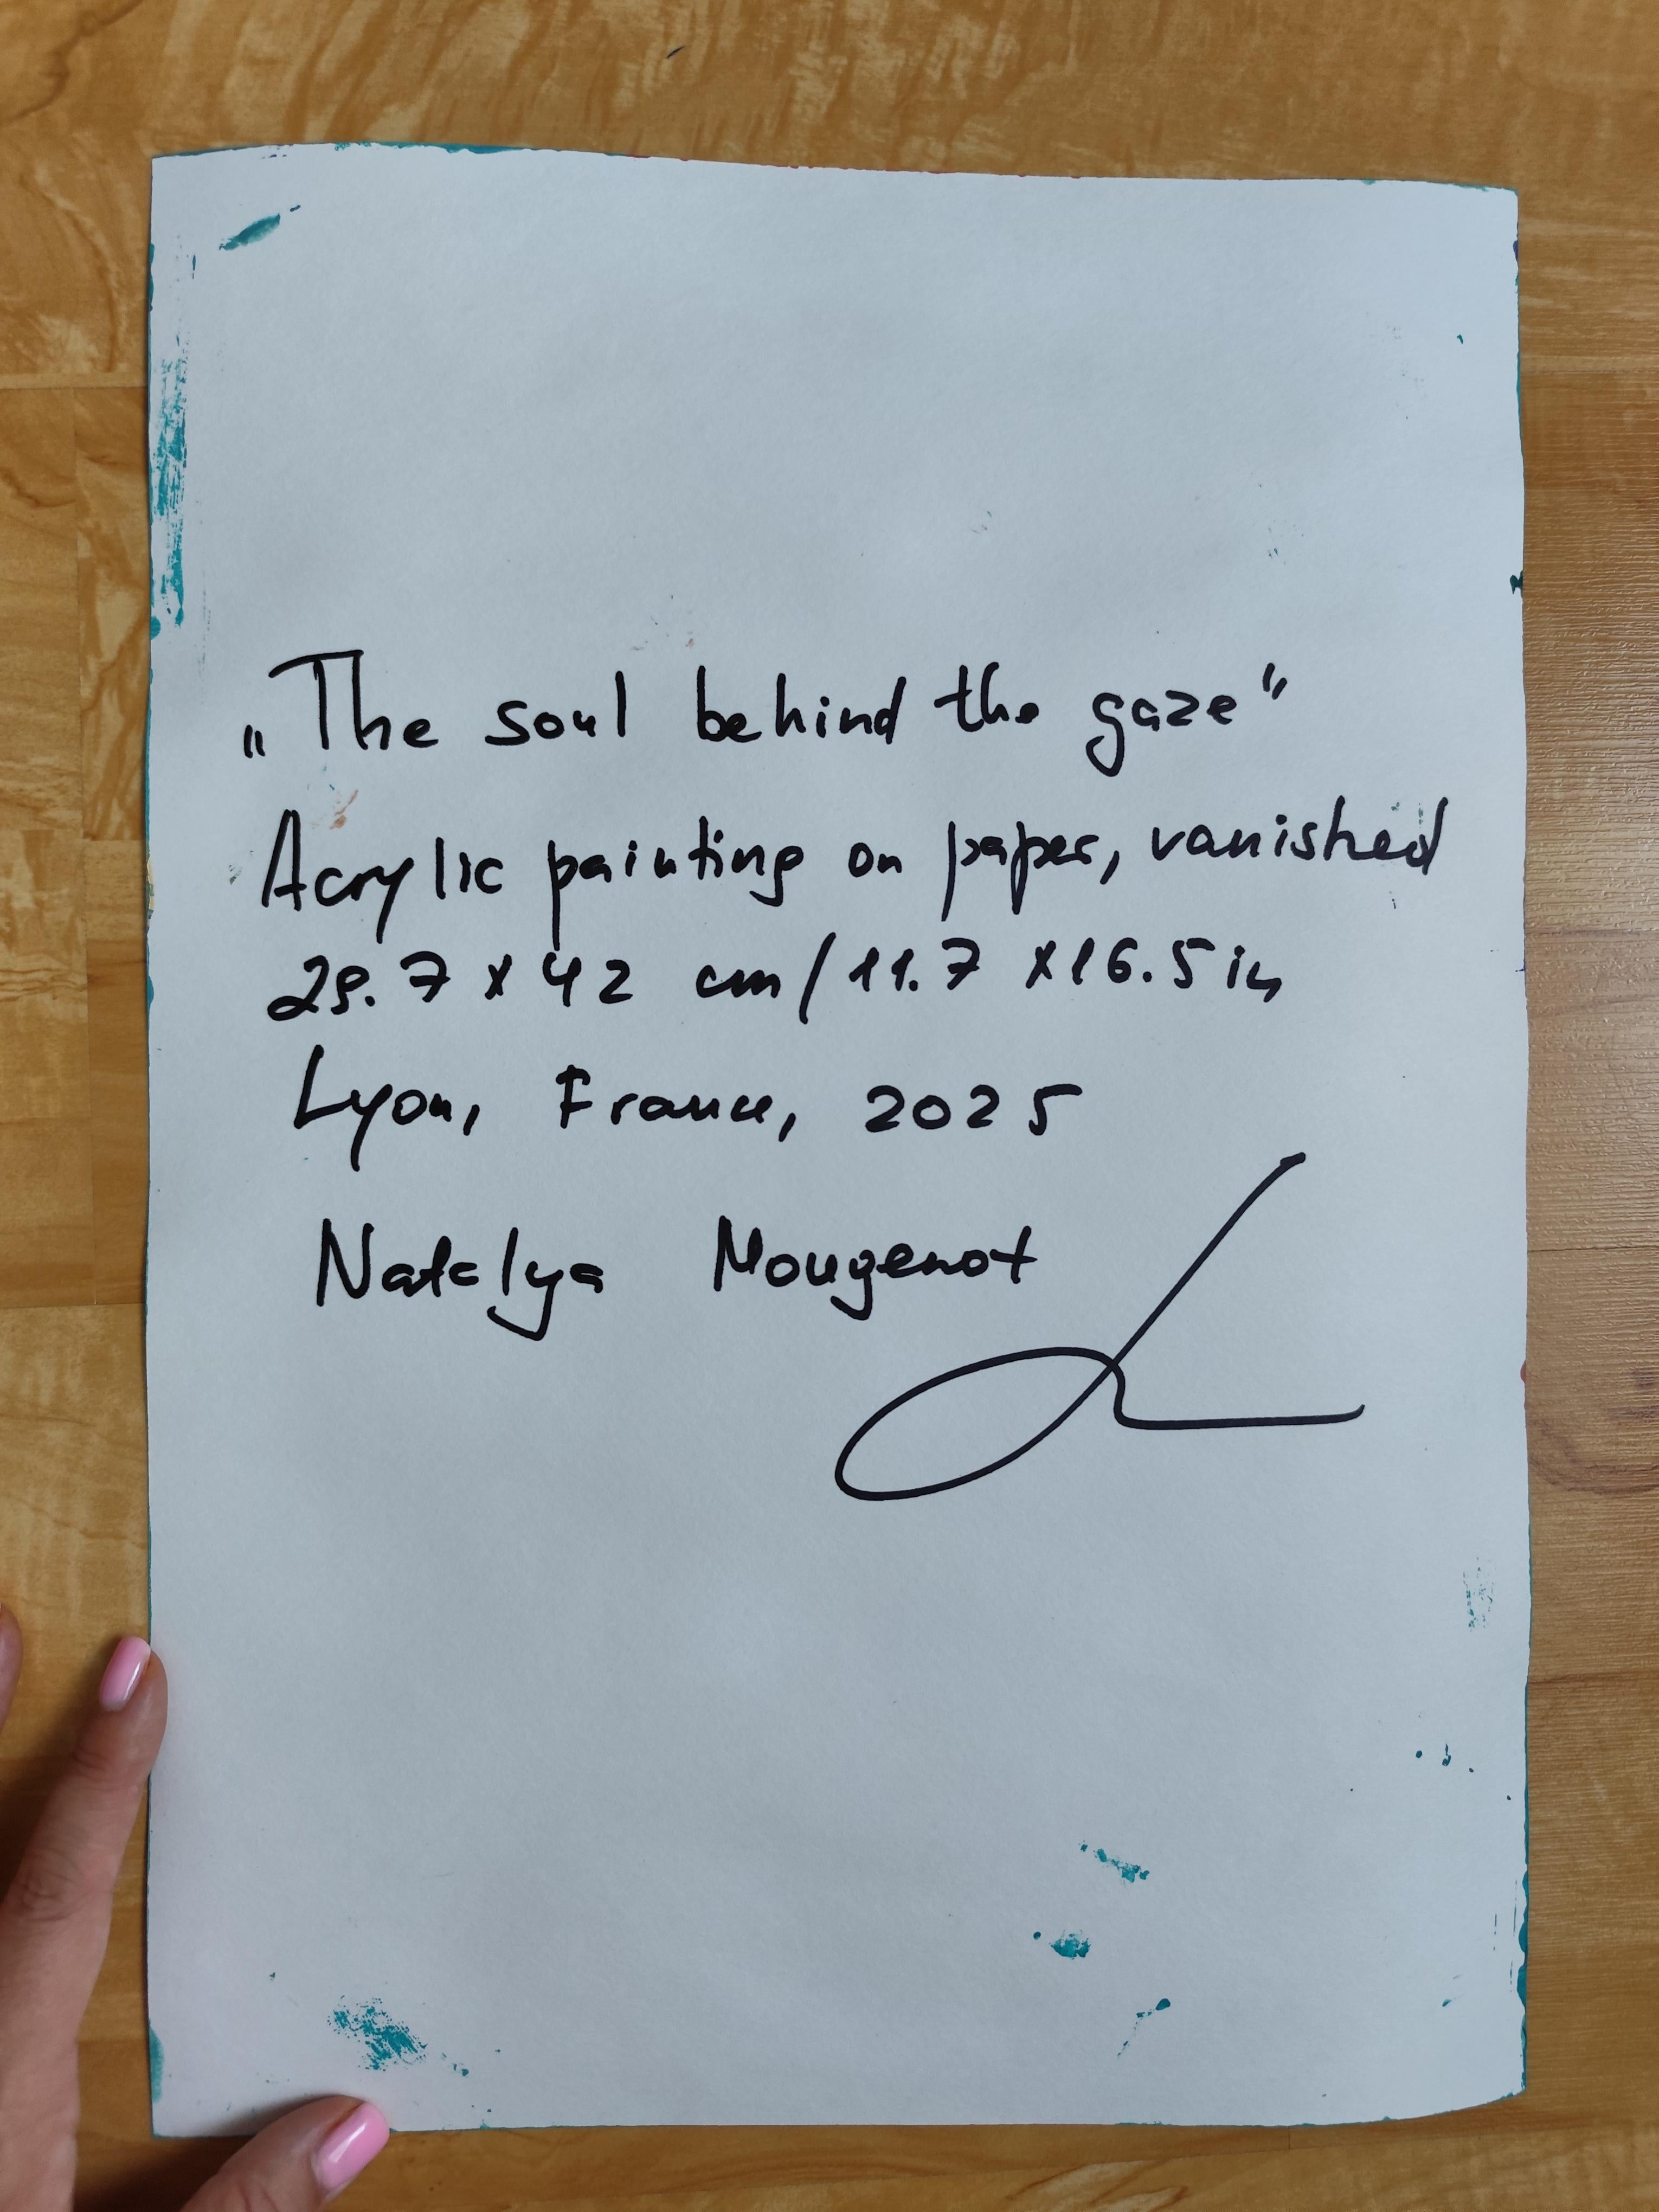 „The soul behind the gaze“
Acrylic painting on paper, vanished
29.7 x 42 cm / 11.7 x 16.5 in
Lyon, France, 2025
Natalya Mougenot